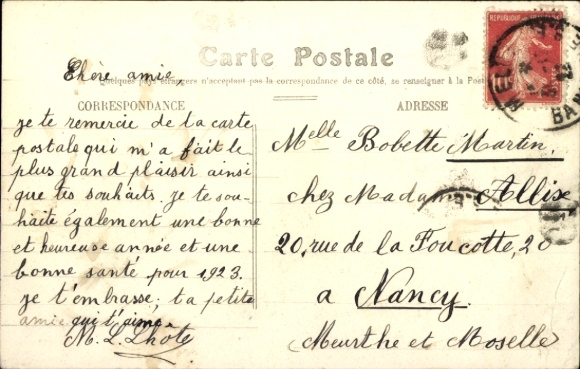 Carte Postale
Chère amie,
Quelques pays étrangers n'acceptant pas la correspondance de ce côté, se renseigner à la Poste
CORRESPONDANCE
je te remercie de la carte
postale qui m'a fait le
plus grand plaisir ainsi
que tes souhaits. je te sou-
haite également une bonne
et heureuse année et une
bonne santé pour 1923.
je t'embrasse, ta petite
amie qui t'aime
M. L. Lhôte
ADRESSE
Melle Bobette Martin,
chez Madame Allix
20, rue de la Foucotte, 20
a Nancy.
Meurthe et Moselle